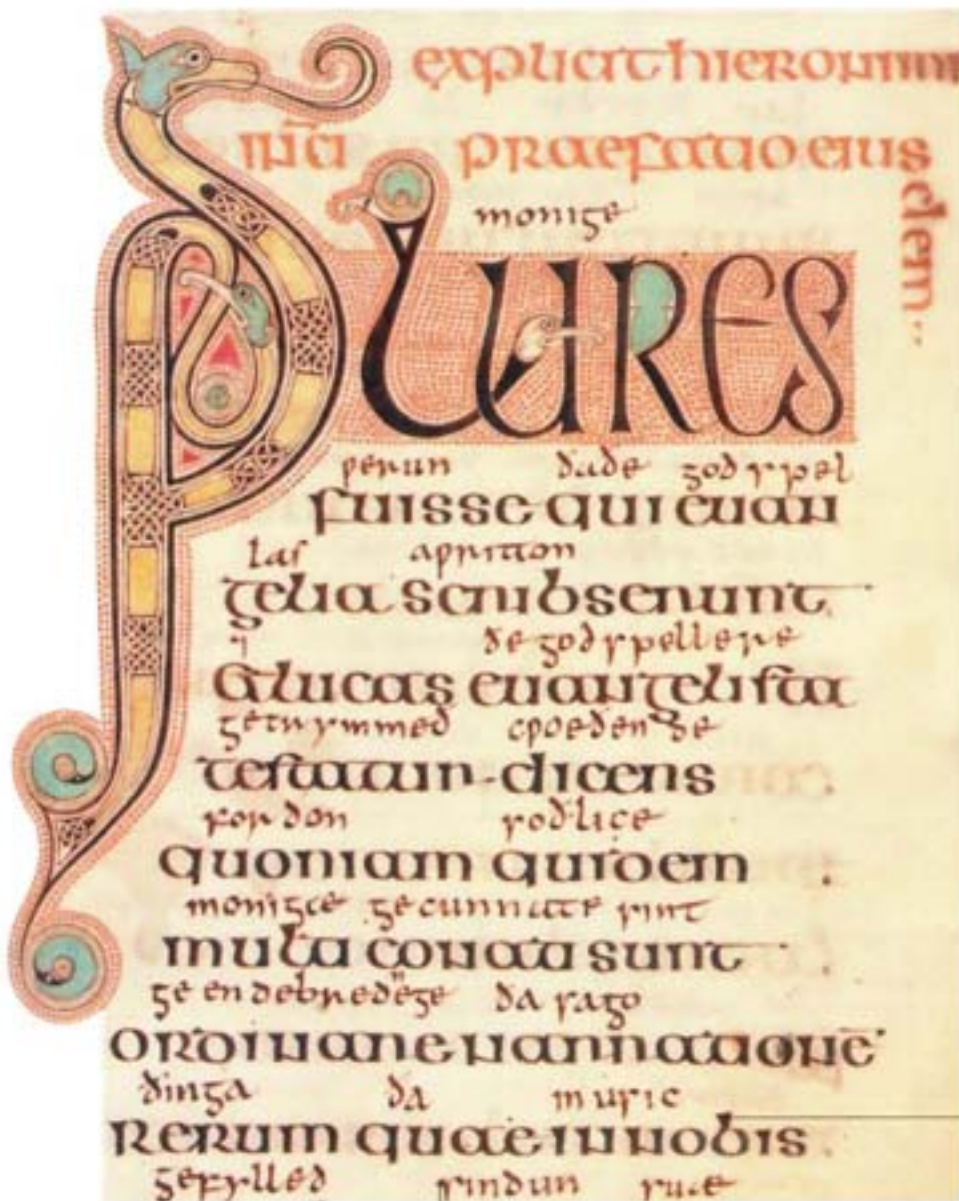 explicit hieronimi
inci praefatio eiusdem
monige
PLURES
ƿerun ðaðe godspel
fuisse qui euan
las aƿritton
gelia scribserunt
⁊ ðe godspellere
& lucas euangelista
getrymmed cƿoeðende
testatur dicens
forðon soðlice
quoniam quidem
monigæ gecunnate sint
multi conati sunt
ða sago
ordinare narrationē
ðinga ða in usic
rerum quae in nobis
gefylled sindun